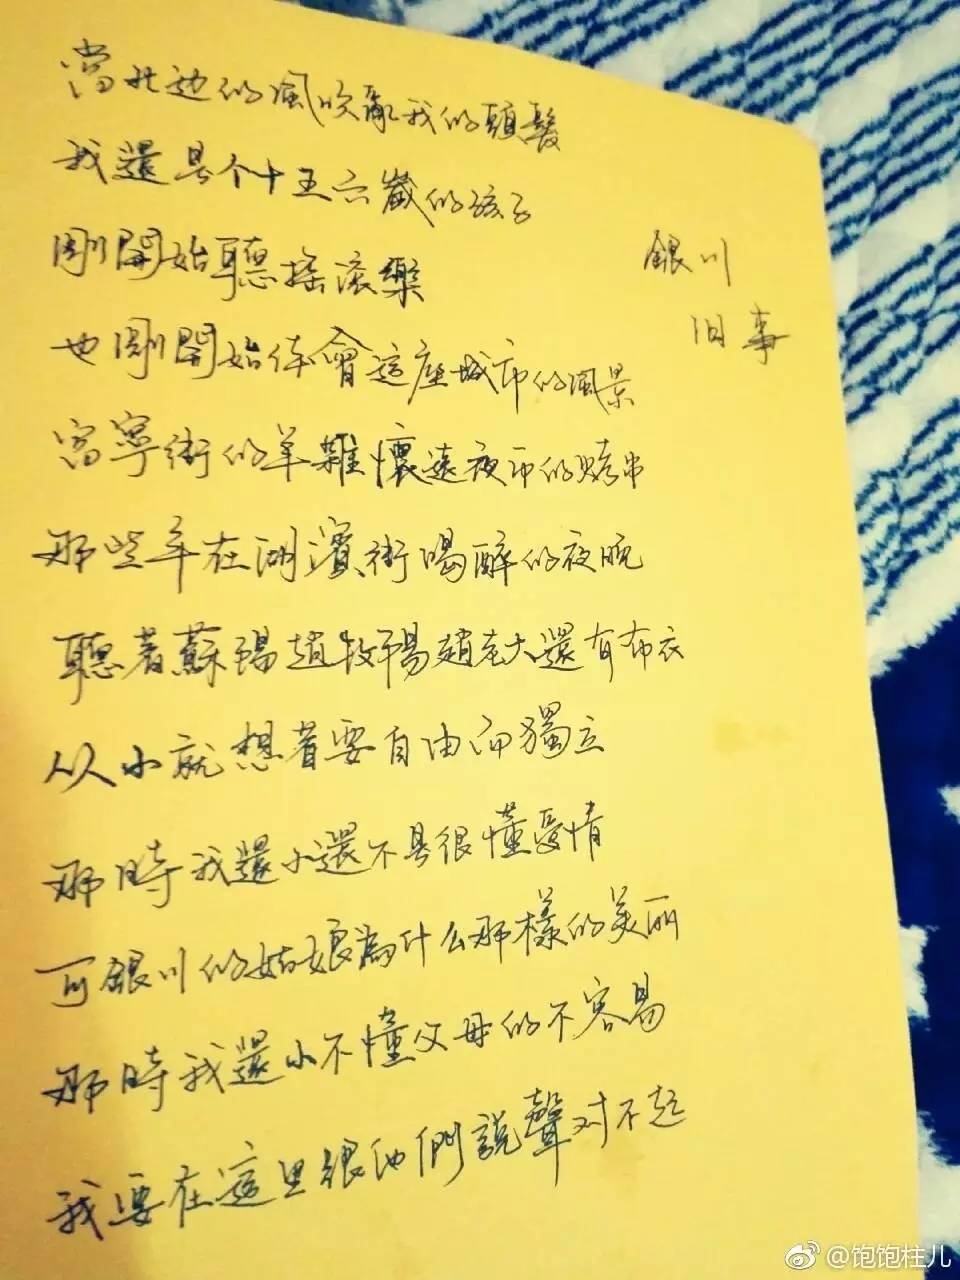 當北边的風吹亂我的頭髮
我還是个十五六歲的孩子
剛開始聽搖滾樂
銀川
旧事
也剛開始体會這座城市的風景
富寧街的羊雜懷遠夜市的烤串
那些年在湖濱街喝醉的夜晚
聽着蘇陽趙牧陽趙老大還有布衣
从小就想着要自由而獨立
那時我還小還不是很懂愛情
可銀川的姑娘為什么那樣的美丽
那時我還小不懂父母的不容易
我要在這里跟他們說聲对不起
@饱饱柱儿